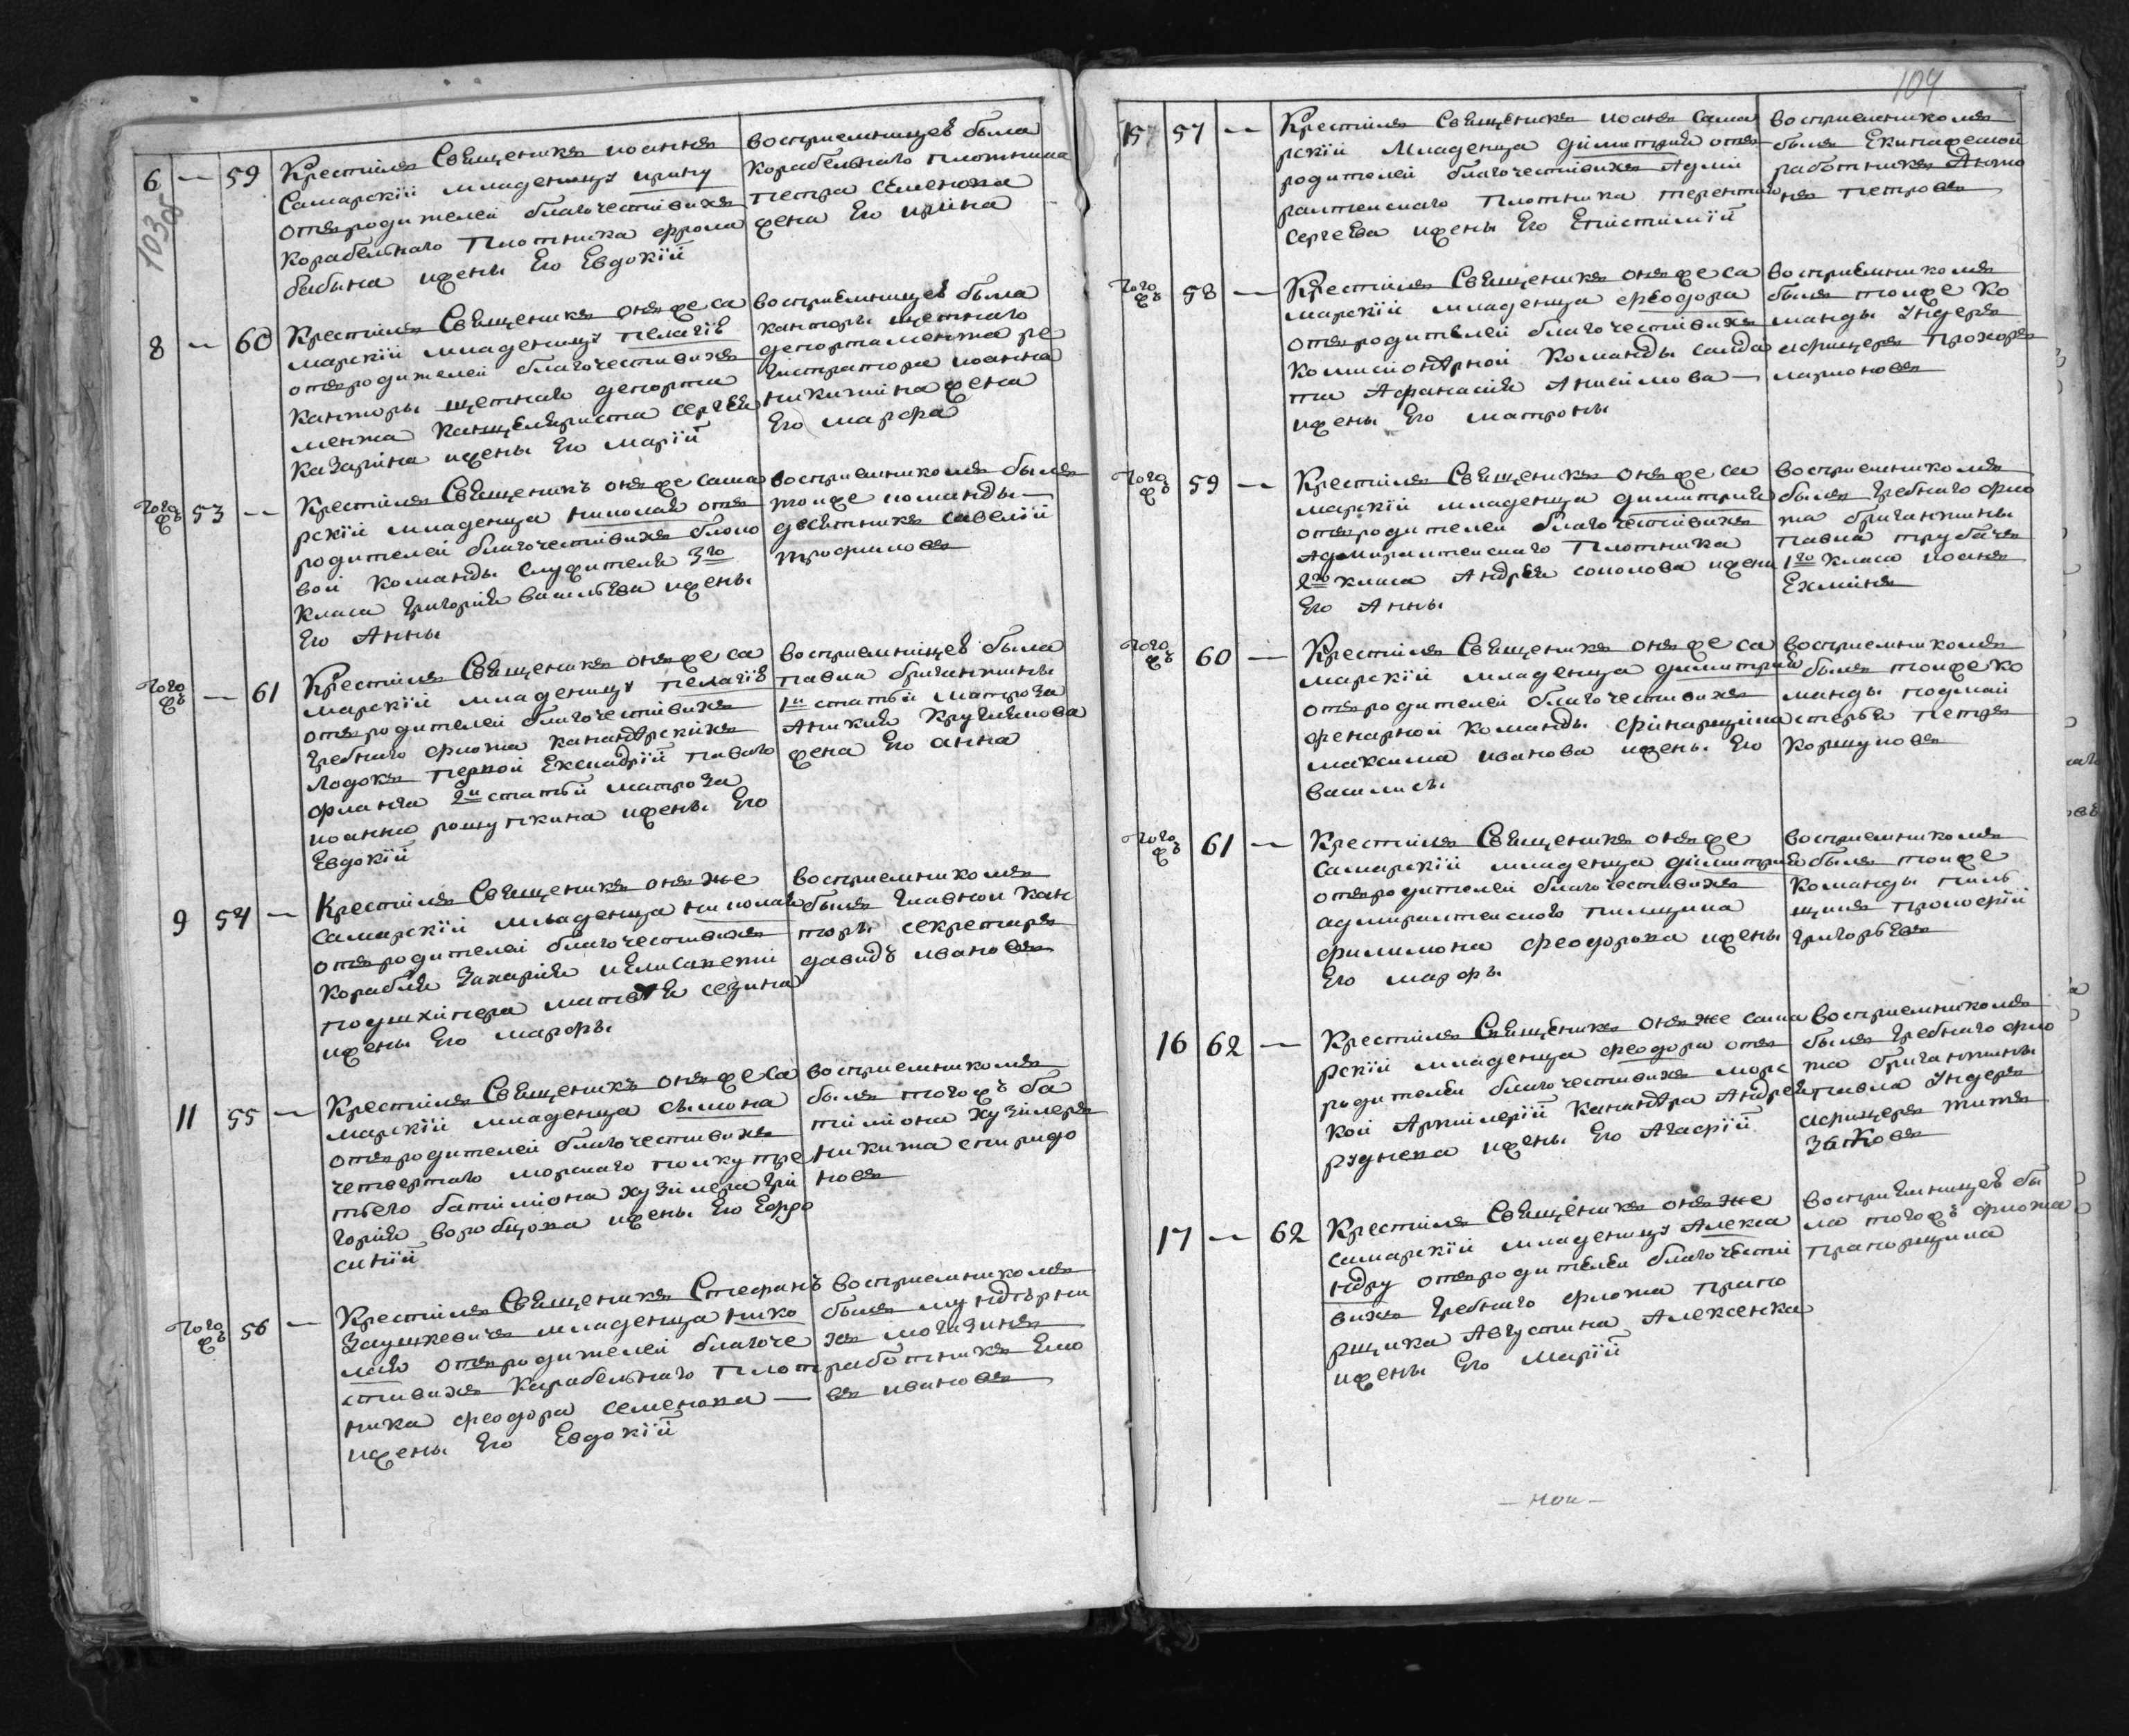 103 об
6 — 59
Крестилъ Священикъ иоаннъ
Самарскїй младеницу ирину
отъ родителей благочестивихъ
корабельнаго плотника фрола
бабина ижены Его Евдокїй
восприемницеѣ была
корабельнаго плотника
петра семенюка
жена Его ирина
8 — 60
Крестилъ Священикъ онъ же Са
марскїй младеницу пелагїѣ
отъ родителей благочестивихъ
канторы щетнаго депорта
мента канцеляриста сергея
казарина ижены Его марїй
восприемницеѣ была
канторы щетнаго
депортамента ре
гистратора иоанна
никитина жена
Его марфа
Того жъ 53 —
Крестилъ Священикъ онъ же сама
рскїй младенца николая отъ
родителей благочестивихъ блоко
вой команды служителя 3го
класа григорія васильева ижены
Его Анны
восприемникомъ былъ
тойже команды —
десятникъ савелїй
трофимовъ
Того жъ — 61
Крестилъ Священикъ онъ же са
марскїй младеницу пелагїѣ
отъ родителей благочестивихъ
гребнаго флота
лодокъ первой Ескадрїй
фланга 2й статьй матроза
иоанна ижены Его
Евдокїй
восприемницеѣ была
павла бригантины
1й статьй матроза
Аникея
жена Его анна
9 54 —
Крестилъ Священикъ онъ же
Самарскїй младенца николая
отъ родителей благочестивихъ
корабля Захарія иЕлисаветы
подшхипера матвея сезина
ижены Его марфы
восприемникомъ
былъ главной кан
торы секретарь
давидъ ивановъ
11 55 —
Крестилъ Священикъ онъ же са
марскїй младенца сымона
отъ родителей благочестивихъ
четвертаго морскаго полку тре
тьего батиліона гри
горія воробцова ижены Его Ефро
синїй
восприемникомъ
былъ тогожъ ба
тиліона
никита спиридо
новъ
Того жъ 56 —
Крестилъ Священикъ Стефанъ
Заушкевичъ младенца нико
лая отъ родителей благоче
стивихъ карабельнаго плот
ника феодора семенюка —
ижены Его Евдокїй
восприемникомъ
былъ мундырни
хъ могазинъ
работникъ
въ ивановъ
104
15 57 —
Крестилъ Священикъ иоанъ Сама
рскїй младенца димитрия отъ
родителей благочестивихъ Адми
ралтенскаго плотника терентия
сергеева ижены Его Епистимїй
восприемникомъ
былъ Екипажеской
работникъ Анто
нъ петровъ
Того жъ 58 —
Крестилъ Священикъ онъ же са
марскїй младенца феодора
отъ родителей благочестивихъ
комисіонерной команды салда
та Афанасия Анисимова —
ижены Его матроны
восприемникомъ
былъ тойже ко
манды Ундеръ
афицеръ прохоръ
ларионовъ
Того жъ 59 —
Крестилъ Священикъ онъ же са
марскїй младенца димитрия
отъ родителей благочестивихъ
Адмиралтенскаго плотника
2го класа Андрея соколова ижены
Его Анны
восприемникомъ
былъ гребнаго фло
та бригантины
павла трубачъ
1го класа иоанъ
Ехминъ
Того жъ 60 —
Крестилъ Священикъ онъ же са
марскїй младенца димитрия
отъ родителей благочестивихъ
фенарной команды финарщика
максима иванова ижены Его
василисы
восприемникомъ
былъ тойже ко
манды подмай
стерья петръ
коршуновъ
Того жъ 61 —
Крестилъ Священикъ онъ же
Самарскїй младенца димитрия
отъ родителей благочестивихъ
адмиралтенскаго пилщика
филимона феодорова ижены
Его марфы
восприемникомъ
былъ тойже
команды пиль
щикъ прокофїй
григорьевъ
16 62 —
Крестилъ Священикъ онъ же сама
рскїй младенца феодора отъ
родителей благочестивихъ морс
кой Артилерїй канонера Андрея
руднева ижены Его Агафїй
восприемникомъ
былъ гребнаго фло
та бригантины
павла Ундеръ
афицеръ титъ
17 — 62
Крестилъ Священикъ онъ же
самарскїй младеницу Алекса
ндру отъ родителей благочести
вихъ гребнаго флота прапо
рщика Августина Алексенка
ижены Его Марїй
восприемницеѣ бы
ла тогожъ флота
прапорщика